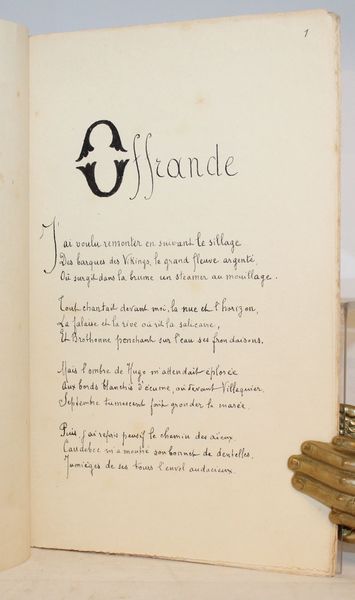 1
Offrande
J'ai voulu remonter en suivant le sillage
Des barques des Vikings, le grand fleuve argenté
Où surgit dans la brume un steamer au mouillage.
Tout chantait devant moi, la nue et l'horizon,
La falaise et la rive où rit la salicaire,
Et Brothonne penchant sur l'eau ses frondaisons.
Mais l'ombre de Hugo m'attendait éplorée
Aux bords blanchis d'écume, où devant Villequier,
Septembre tumescent fait gronder la marée.
Puis j'ai refait pensif le chemin des aïeux.
Caudebec m'a montré son bonnet de dentelles.
Jumièges de ses tours l'envol audacieux.